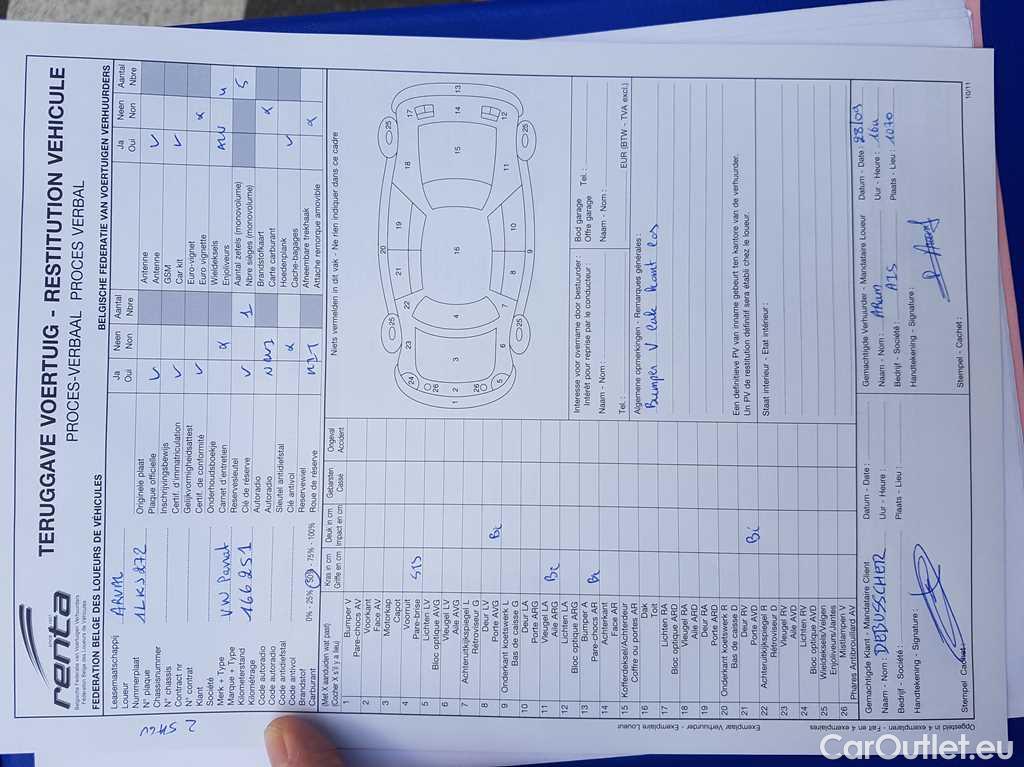 renta
Belgische Federatie van Voertuigen Verhuurders
Fédération Belge des Loueurs de Véhicules
TERUGGAVE VOERTUIG - RESTITUTION VEHICULE
PROCES-VERBAAL PROCES VERBAL
FEDERATION BELGE DES LOUEURS DE VÉHICULES
BELGISCHE FEDERATIE VAN VOERTUIGEN VERHUURDERS
Leasemaatschappij
Loueur
ARVAL
Nummerplaat
N° plaque
1LKJ272
Chassisnummer
N° chassis
Contract nr
N° contrat
Klant
Société
Merk + Type
Marque + Type
VW Passat
Kilometerstand
Kilométrage
166251
Code autoradio
Code autoradio
Code antidiefstal
Code antivol
Brandstof
Carburant
0% - 25% - 50% - 75% - 100%
Ja Neen Aantal
Oui Non Nbre
Originele plaat
Plaque officielle
Inschrijvingsbewijs
Certif. d'immatriculation
Gelijkvormigheidsattest
Certif. de conformité
Onderhoudsboekje
Carnet d'entretien
Reservesleutel
Clé de réserve
1
Autoradio
Autoradio
Sleutel antidiefstal
Clé antivol
Reservewiel
Roue de réserve
Ja Neen Aantal
Oui Non Nbre
Antenne
Antenne
GSM
Car kit
Euro-vignet
Euro vignette
Wieldeksels
Enjoliveurs
ALU 4
Aantal zetels (monovolume)
Nbre sièges (monovolume)
5
Brandstofkaart
Carte carburant
Hoedenplank
Cache-bagages
Afneembare trekhaak
Attache remorque amovible
(Met X aanduiden wat past)
(Cocher X s'il y a lieu)
Kras in cm
Griffe en cm
Deuk in cm
Impact en cm
Gebarsten
Cassé
Ongeval
Accident
1 Bumper V
Pare-chocs AV
2 Voorkant
Face AV
3 Motorkap
Capot
4 Voorruit
Pare-Brise
5 Lichten LV
Bloc optique AVG
6 Vleugel LV
Aile AVG
7 Achteruitkijkspiegel L
Rétroviseur G
8 Deur LV
Porte AVG
9 Onderkant koetswerk L
Bas de caisse G
10 Deur LA
Porte ARG
11 Vleugel LA
Aile ARG
12 Lichten LA
Bloc optique ARG
13 Bumper A
Pare-chocs AR
14 Achterkant
Face AR
15 Kofferdeksel/Achterdeur
Coffre ou portes AR
16 Dak
Toit
17 Lichten RA
Bloc optique ARD
18 Vleugel RA
Aile ARD
19 Deur RA
Porte ARD
20 Onderkant koetswerk R
Bas de caisse D
21 Deur RV
Porte AVD
22 Achteruitkijkspiegel R
Rétroviseur D
23 Vleugel RV
Aile AVD
24 Lichten RV
Bloc optique AVD
25 Wieldeksels/Velgen
Enjoliveurs/Jantes
26 Mistlampen V
Phares Antibrouillard AV
Niets vermelden in dit vak - Ne rien indiquer dans ce cadre
Interesse voor overname door bestuurder :
Intérêt pour reprise par le conducteur :
Naam - Nom :
Tel. :
Bod garage
Offre garage
Tel. :
Naam - Nom :
EUR (BTW - TVA excl.)
Algemene opmerkingen - Remarques générales :
Bumper V
Een definitieve PV van inname gebeurt ten kantore van de verhuurder.
Un PV de restitution définitif sera établi chez le loueur.
Staat interieur - Etat intérieur :
Gemachtigde Klant - Mandataire Client
Datum - Date :
Naam - Nom : DEBUSSCHER
Uur - Heure :
Bedrijf - Société :
Plaats - Lieu :
Handtekening - Signature :
Stempel - Cachet :
Gemachtigde Verhuurder - Mandataire Loueur
Datum - Date : 28/09
Naam - Nom :
Uur - Heure : 16u
Bedrijf - Société : AIS
Plaats - Lieu : 1070
Handtekening - Signature :
Stempel - Cachet :
Opgesteld in 4 exemplaren - Fait en 4 exemplaires
Exemplaar Verhuurder - Exemplaire Loueur
10/11
CarOutlet.eu